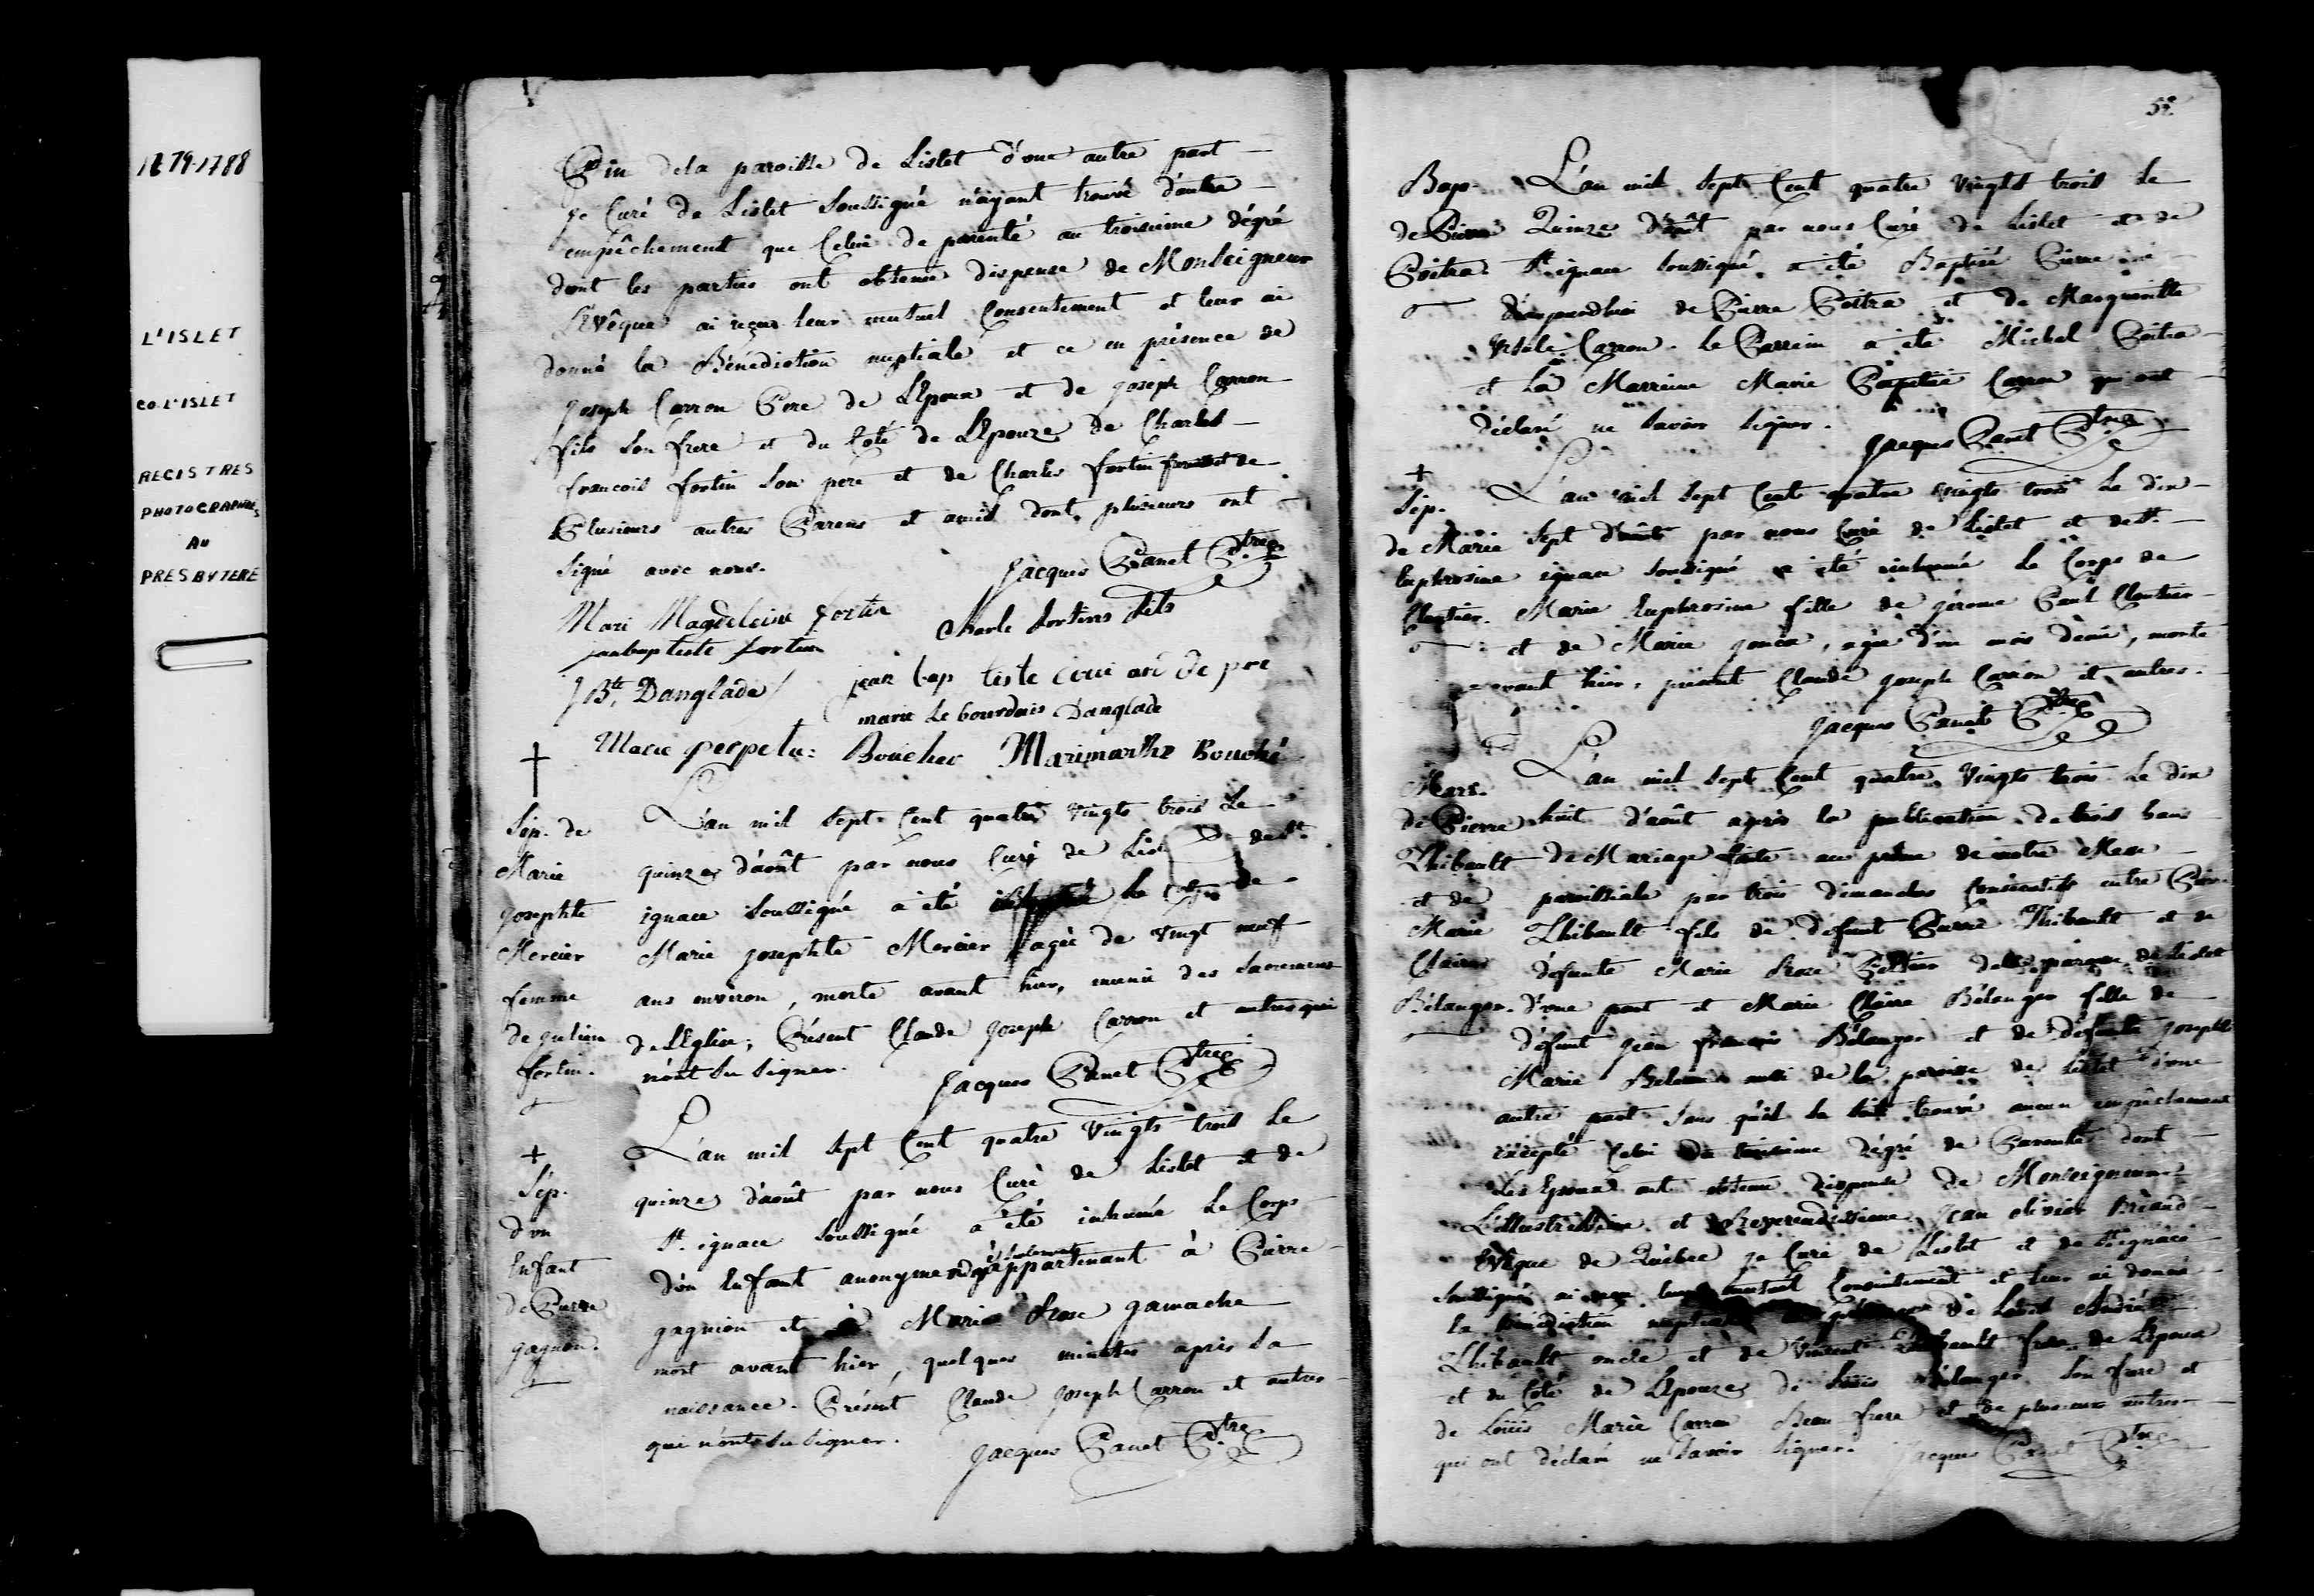 1679-1788
L'ISLET
CO. L'ISLET
REGISTRES
PHOTOGRAPHIÉS
AU
PRESBYTERE
Pin dela paroisse de Lislet d'une autre part
je Curé de Lislet soussigné n'ayant trouvé d'autre
empêchement que Celui de parenté au troisieme dégré
dont les parties ont obtenu dispense de Monseigneur
L'Evêque ai reçu leur mutuel Consentement et leur ai
donné la Bénédiction nuptiale et ce en présence de
joseph Carron Pere de L'Epoux et de joseph Carron
fils son frere et du Coté de L'Epouze de Charles
francois fortin son pere et de Charles fortin et de
Plusieurs autres Parens et amis dont plusieurs ont
signé avec nous. Jacques Panet Ptre
Mari Magdeleine fortin Charle fortins fils
janbaptiste fortin
J Bte Danglade jean bap tiste
marie Le bourdais Danglade
Marie perpetu: Boucher Marimarthe Bouché
†
Sép. de
Marie
josephte
Mercier
femme
de julien
fortin.
L'an mil sept Cent quatre vingts trois Le
quinze d'août par nous Curé de Lislet et de st.
ignace soussigné a été le Corps de
Marie josephte Mercier agée de vingt neuf
ans environ, morte avant hier, munie des sacremens
de L'Eglise; Présent Claude joseph Carron et autres qui
n'ont su signer. Jacques Panet Ptre
†
Sép.
d'un
Enfant
de Pierre
gagnon.
L'an mil sept Cent quatre vingts trois Le
quinze d'août par nous Curé de Lislet et de
St. ignace soussigné a été inhumé Le Corps
d'un Enfant anonyme appartenant à Pierre
gagnion et à Marie Rose gamache
mort avant hier, quelques minutes après sa
naissance. Présent Claude joseph Carron et autres
qui n'ont su signer. Jacques Panet Ptre
52
Bap.
de Pierre
Poitra
L'an mil sept Cent quatre vingts trois Le
Quinze d'août par nous Curé de Lislet et de
St ignace soussigné a été Baptisé Pierre né
d'aujourdhui de Pierre Poitra et de Marguerite
Ursule Carron. Le Parrein a été Michel Poitra
et La Marreine Marie Baptiste Carron qui ont
déclaré ne savoir signer. Jacques Panet Ptre
†
Sép.
de Marie
Euphrosine
Cloutier.
L'an mil sept Cent quatre vingts trois Le dix
sept d'août par nous Curé de Lislet et de St.
ignace soussigné a été inhumé Le Corps de
Marie Euphrosine fille de jérome Paul Cloutier
et de Marie, agée d'un mois, morte
avant hier, présent Claude joseph Carron et autres.
Jacques Panet Ptre
Mar.
de Pierre
Thibault
et de
Marie
Claire
Bélanger.
L'an mil sept Cent quatre vingts trois Le dix
huit d'août après la publication de trois bans
de Mariage faite au prône de notre Messe
paroissiale par trois dimanches Consécutifs entre Pierre
Thibault fils de défunt Pierre Thibault et de
défunte Marie Rose Pelletier de la paroisse de Lislet
d'une part et Marie Claire Bélanger fille de
défunt jean françois Bélanger et de défunte josephte
Marie aussi de la paroisse de Lislet d'une
autre part sans qu'il se soit trouvé aucun empêchement
excepté Celui du troisieme dégré de Parenté dont
Les Epoux ont obtenu dispense de Monseigneur
L'illustrissime et Reverendissime jean olivier Briand
Evêque de Québec je Curé de Lislet et de St ignace
soussigné ai reçu leur mutuel Consentement et leur ai donné
la bénédiction nuptiale en présence de Louis André
Thibault oncle et de vincent Thibault frere de L'Epoux
et du Coté de L'Epouze de Loüis Bélanger son frere et
de Loüis Marie Carron Beau frere et de plusieurs autres
qui ont déclaré ne savoir signer. Jacques Panet Ptre